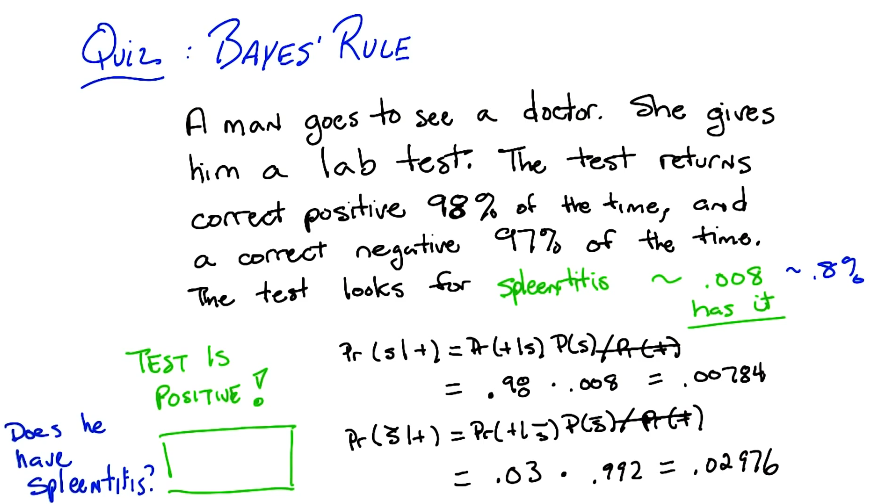 Quiz: BAYES' RULE
A man goes to see a doctor. She gives
him a lab test. The test returns
correct positive 98% of the time, and
a correct negative 97% of the time.
The test looks for spleentitis ~ .008 ~ .8%
has it
TEST IS
POSITIVE!
Does he
have
spleentitis?
Pr(s|+) = Pr(+|s) P(s)/Pr(+)
= .98 · .008 = .00784
Pr(s̄|+) = Pr(+|s̄) P(s̄)/Pr(+)
= .03 · .992 = .02976